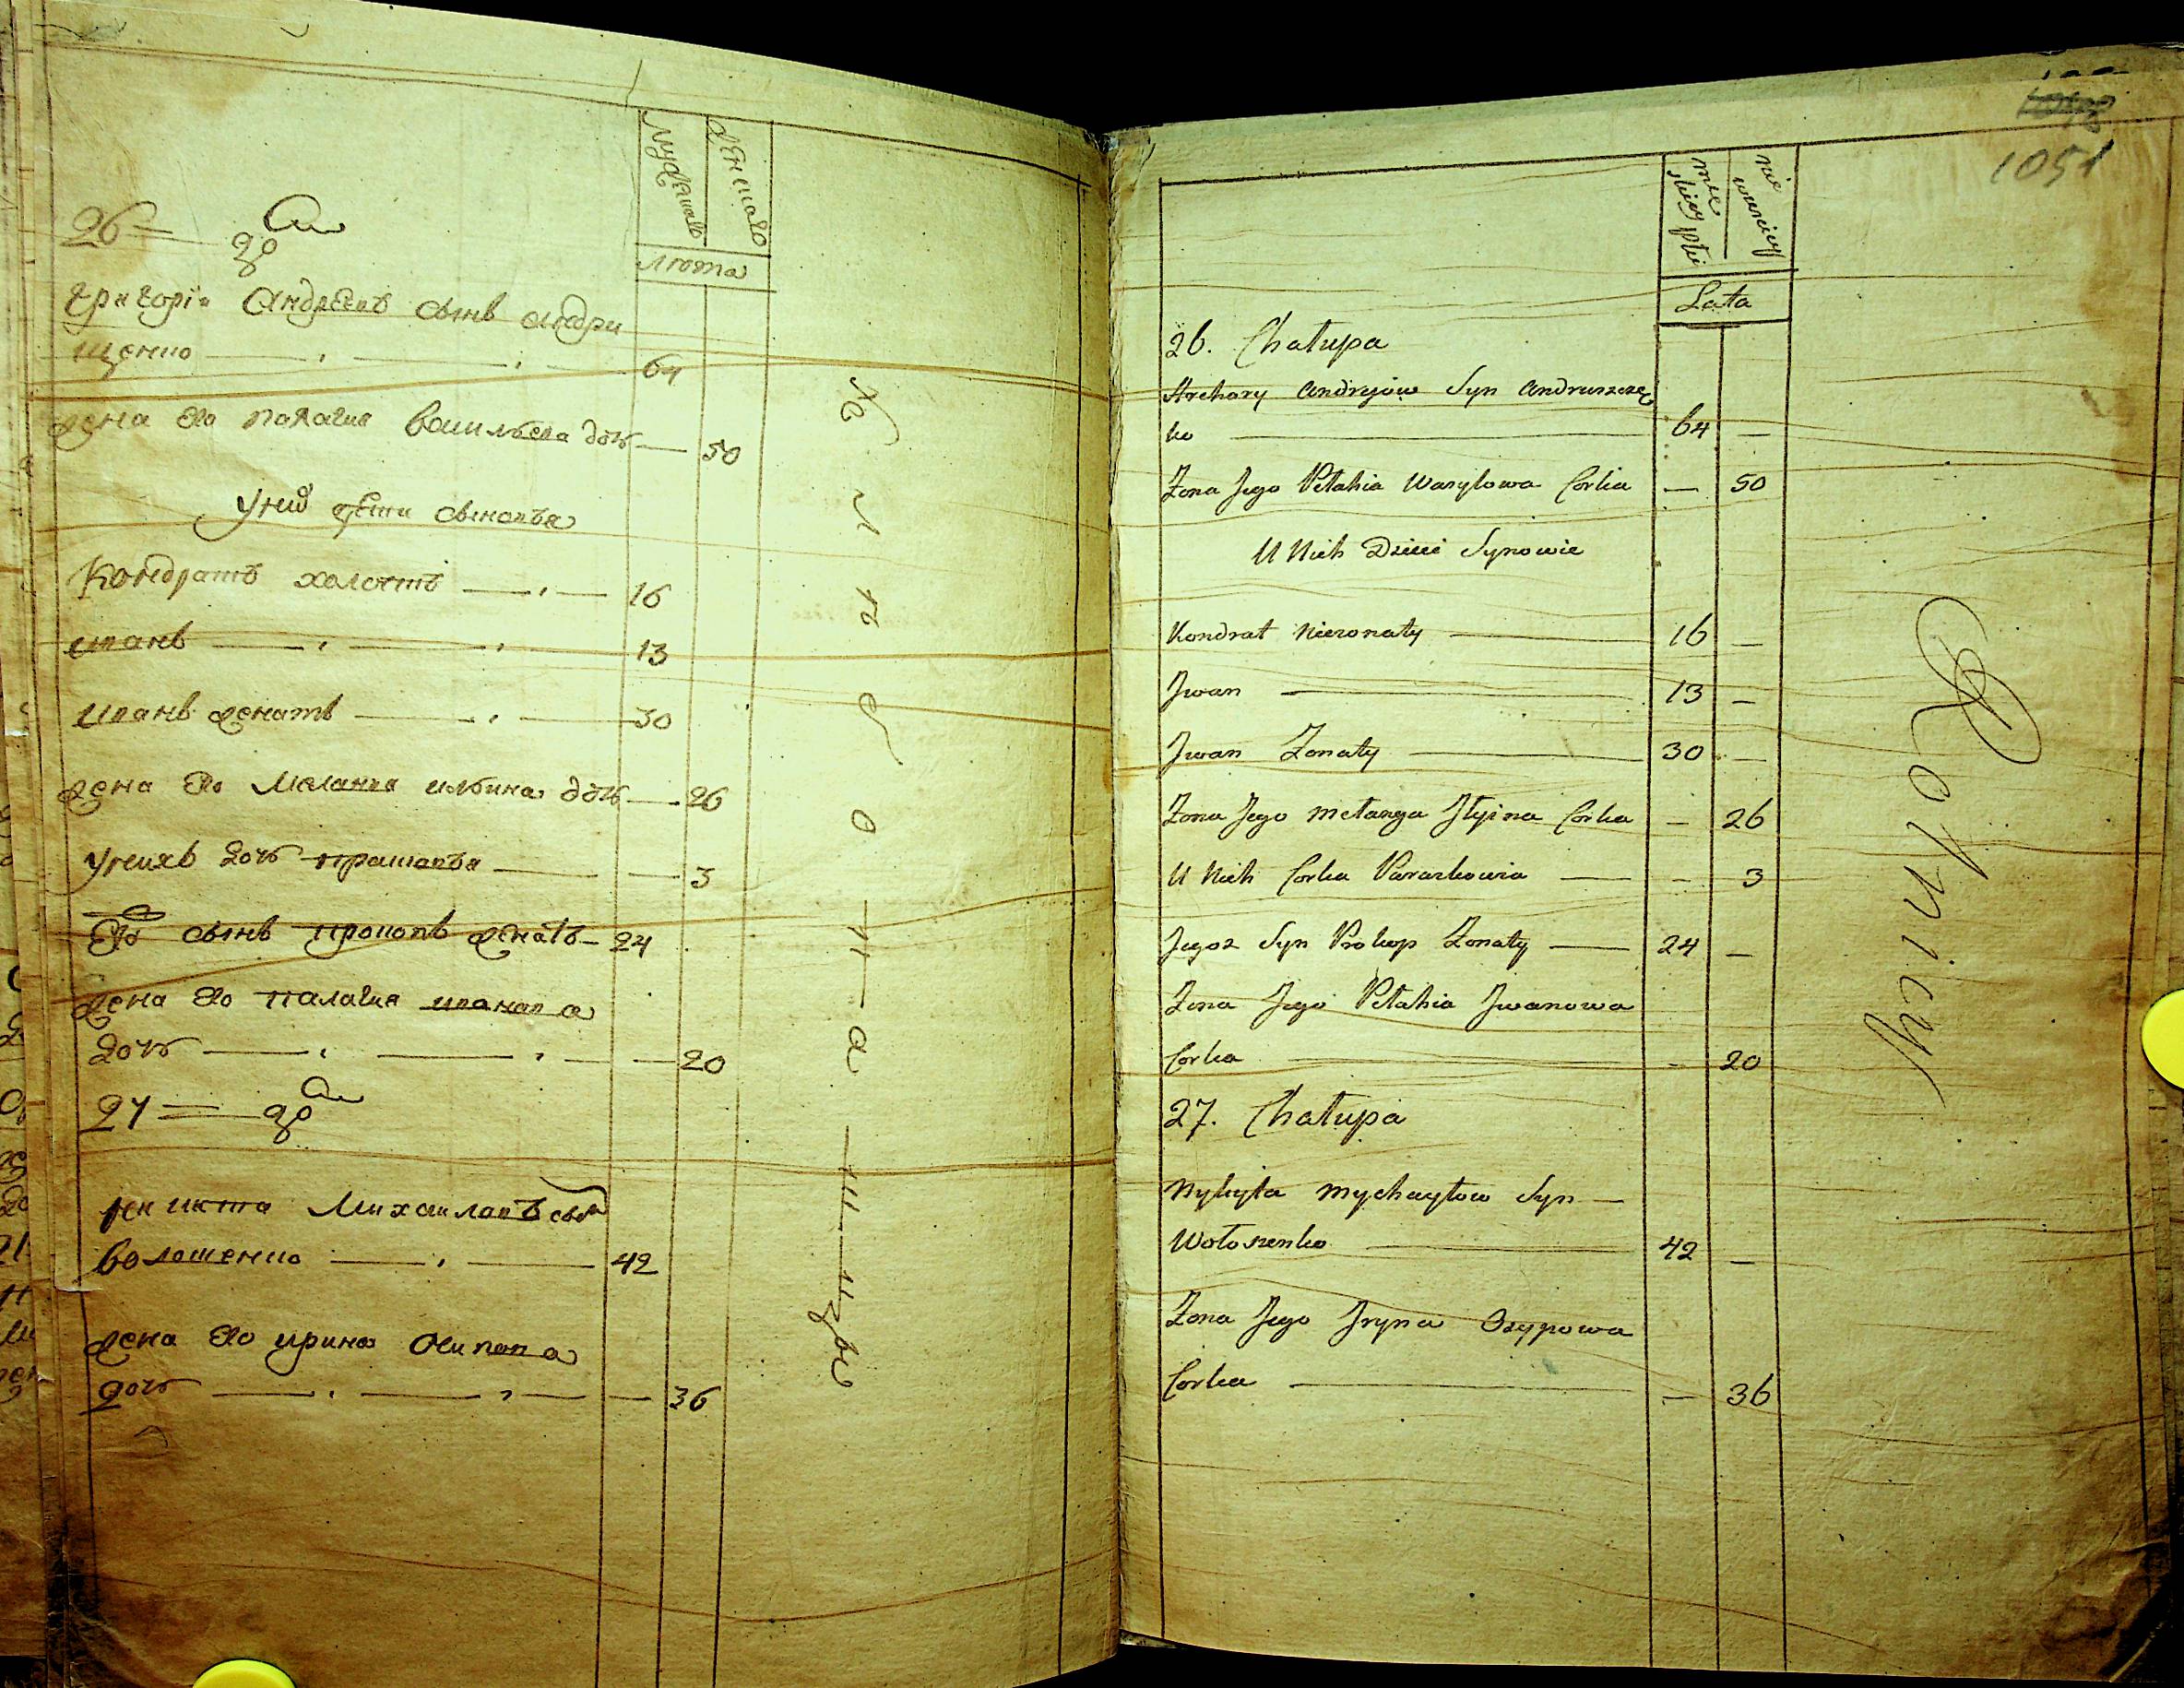 Мужеска
Женскаго
Лѣта
26 — до
Григорій Андреевъ сынъ Андри
щенко — 64
Жена его Палагия Василѣева дочь — 50
У них дѣти сыновья
Кондратъ холостъ — 16
Иванъ — 13
Иванъ женатъ — 30
Жена его Меланья Ильина дочь — 26
У нихъ дочь Прасковья — 3
Его сынъ Прокопъ женатъ — 24
Жена его Палагия Иванова
дочь — 20
27 — до
Никита Михаиловъ сынъ
Волошенко — 42
Жена его Ирина Осипова
дочь — 36
1051
męskiey płci
niewieściey
Lata
26. Chałupa
Hrehory Andryiow Syn Andruszcze
ko — 64 —
Żona Jego Pełahia Wasylowa Corka — 50
U Nich Dzieci Synowie
Kondrat Nieżonaty — 16 —
Jwan — 13 —
Jwan Żonaty — 30 —
Żona Jego Mełanya Jlyina Corka — 26
U Nich Corka Paraskowia — — 3
Jegoż Syn Prokop Żonaty — 24 —
Żona Jego Pełahia Jwanowa
Corka — — 20
27. Chałupa
Nykyta Mychayłow Syn —
Wołoszenko — 42 —
Żona Jego Jryna Osypowa
Corka — — 36
Rolnicy